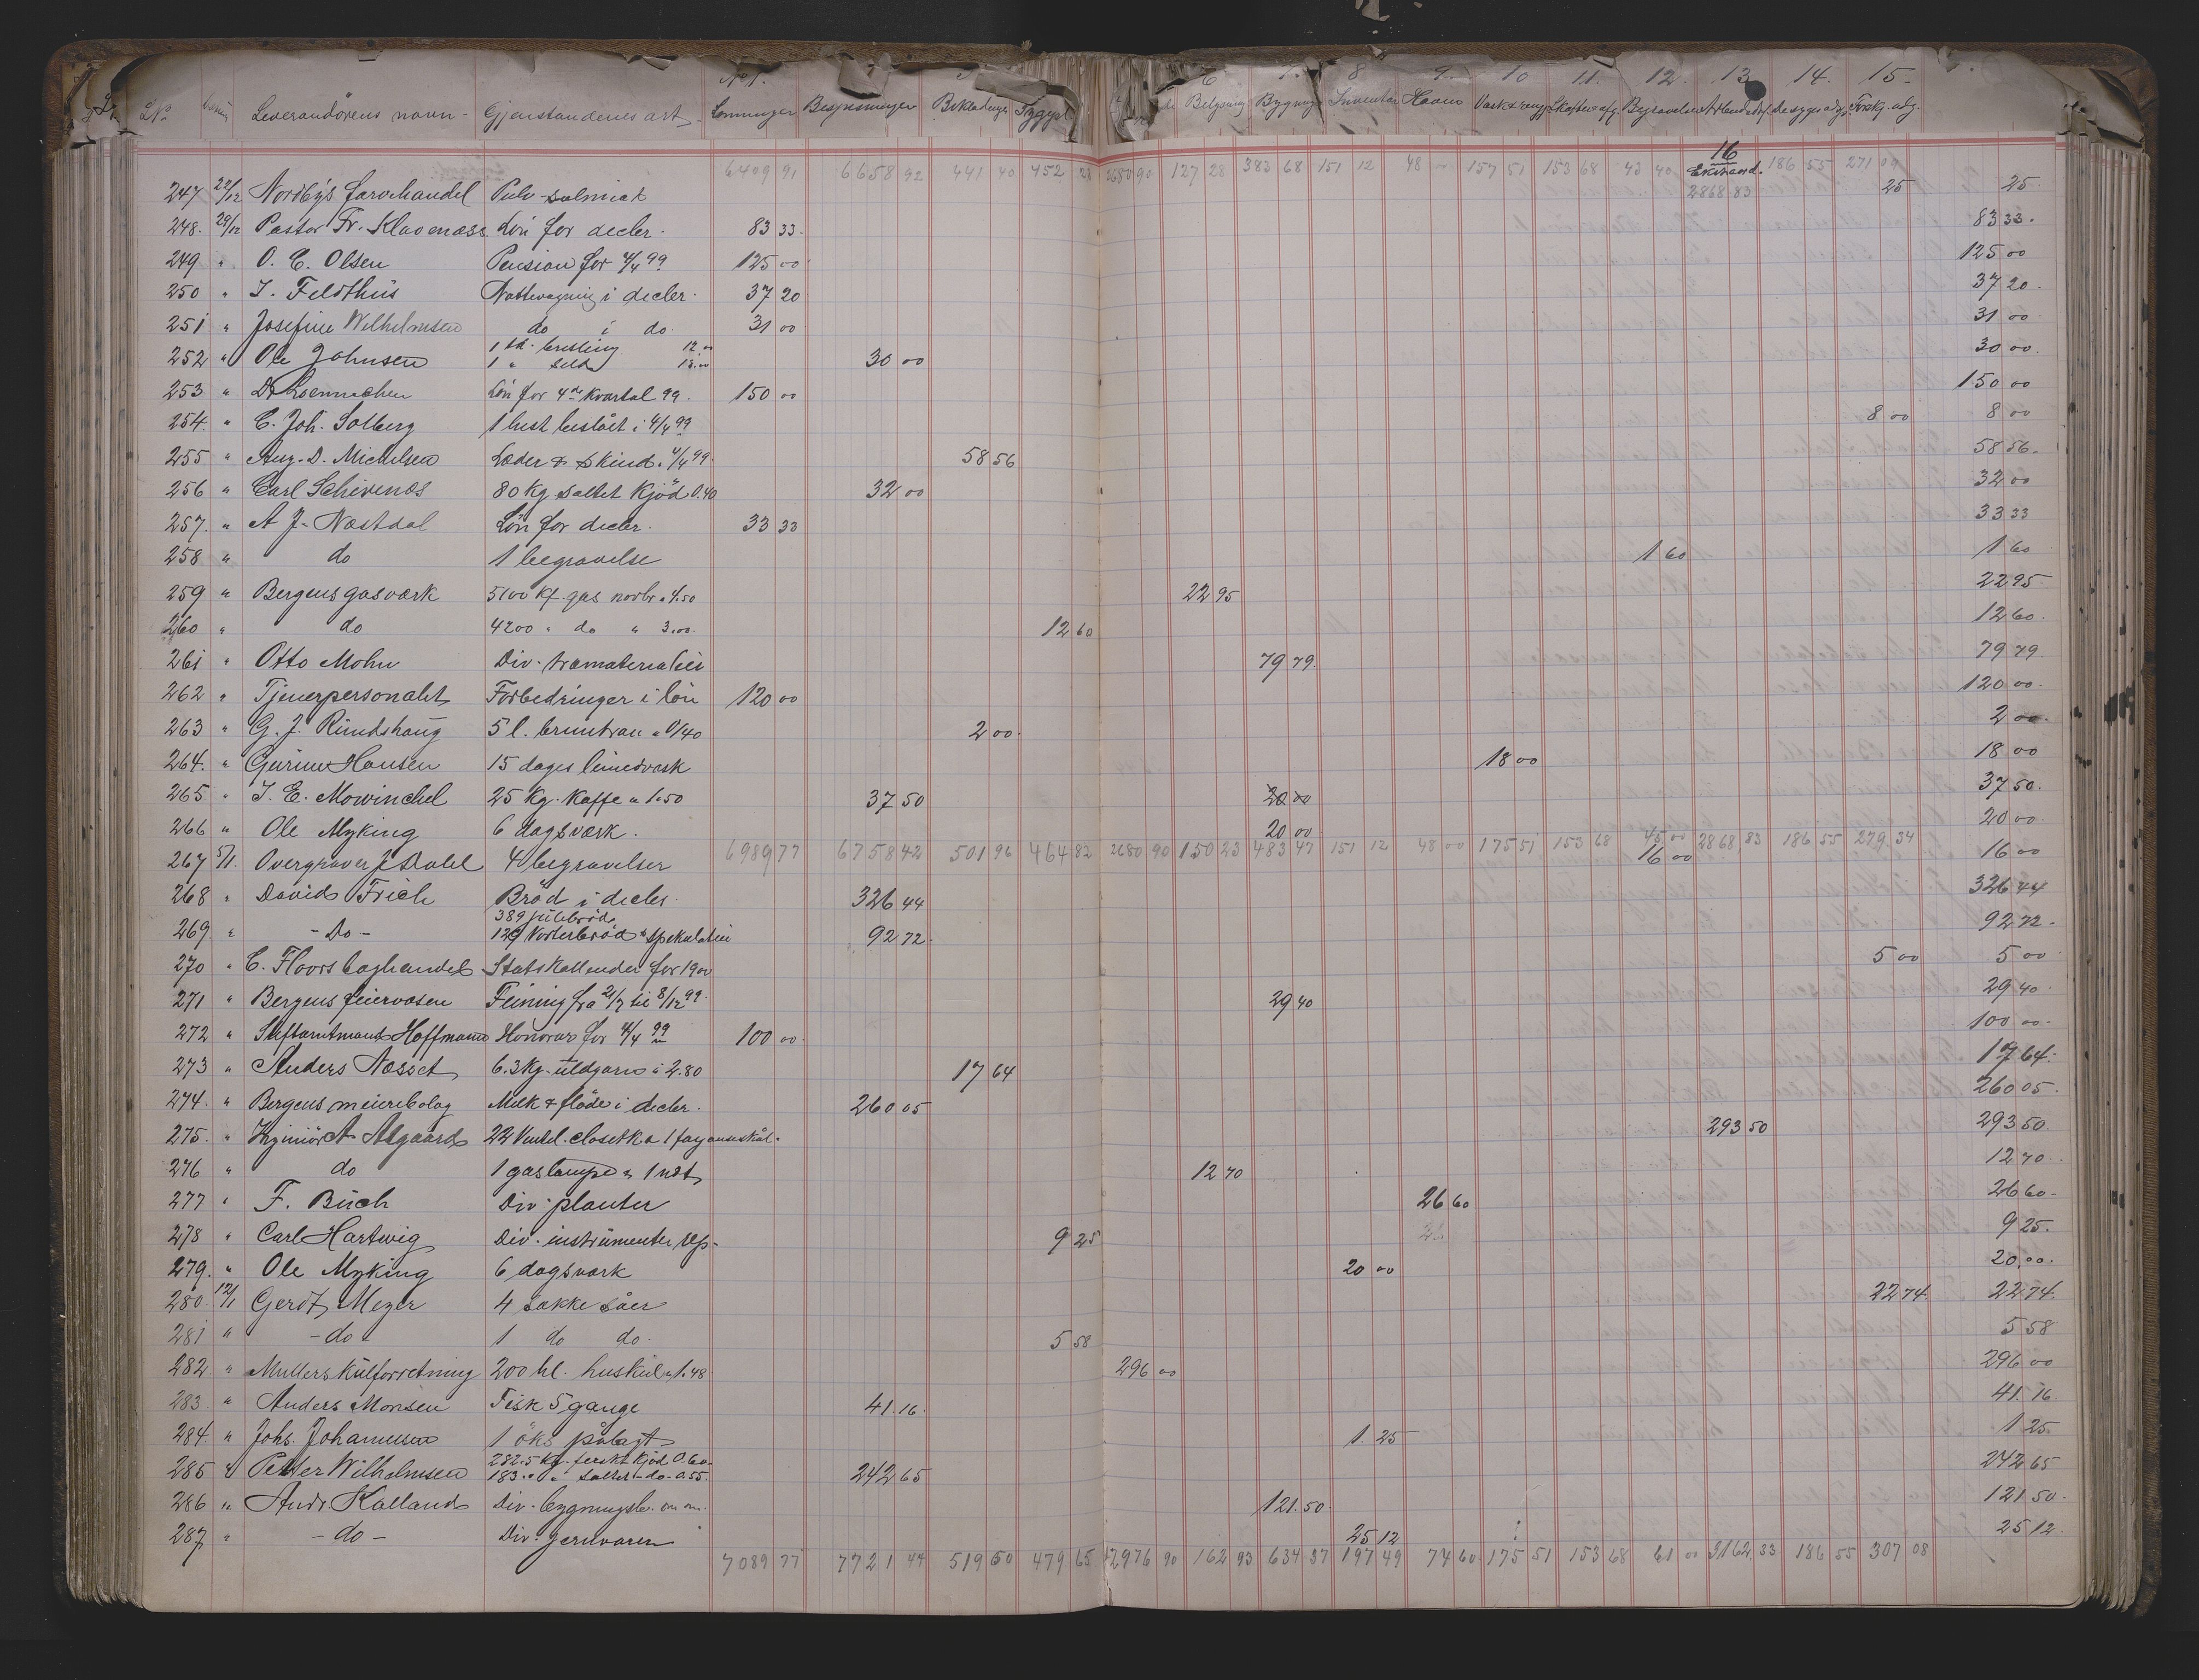 No 1. 6 7. 8 9. 10 11. 12. 13 14. 15.
L No Leverandörens navn - Gjenstandenes art Lønninger Bespisningen Beklædninger Sygepl. Belysning Bygninger Inventar Haven Vask & rengj. Skatter & afg. Begravelser
16
Extraord.
6409 91 6658 92 441 40 452 22 2680 90 127 28 383 68 151 12 48 - 157 51 153 68 43 40 2868 83 186 55 271 09
247 22/12 Nordbÿs farvehandel Pulv salmiak 25 25.
248. 29/12 Pastor Fr. Klavenæss Lön for decbr. 83 33. 83 33.
249 " O. C. Olsen Pension for 4/4 99 125 00 125 00
250 " I. Feldthüs Nattevagning i decbr. 37 20 37 20.
251 " Josefine Wilhelmsen do i do. 31 00 31 00
252 " Ole Johnsen 1 td. brisling 12.00
1 " sild 18.00 30 00 30 00.
253 " Lön for 4de kvartal 99. 150 00 150 00
254. " C. Joh. Solberg 1 hest beslået i 4/4 99 8 00 8 00
255 " Aug. D. Michelsen Læder & skind i 4/4 99. 58 56 58 56.
256 " Carl Schivenes 80 kg saltet kjöd 0.40 32 00 32 00
257. " A J. Næstdal Lön for decbr. 33 33 33 33
258 " do 1 begravelse 1 60 1 60
259 " Bergens gasværk 5100 Kf. gas novbr a 4.50 22 95 22 95
260 " do 4200 " do " 3.00. 12 60 12 60.
261 " Otto Mohn Div. træmaterialier 79 79. 79 79.
262 " Tjenerpersonalet Forbedringer i lön 120 00 120 00.
263 " G. J. Rundshaug 5 l. bruntran a 0/40 2 00. 2 00.
264. " Gurine Hansen 15 dages linnedvask 18 00 18 00
265 " J. E. Mowinckel 25 kg. kaffe a 1.50 37 50 20 00 37 50.
266 " Ole Myking 6 dagsværk. 20 00 20 00.
6989 77 6758 42 501 96 464 82 2680 90 150 23 483 47 151 12 48 00 175 51 153 68 45 00 2868 83 186 55 279 34
267 5/1. Overgraver J. Dahl 4 begravelser 16 00 16 00
268 " David Frich Bröd i decbr. 326 44 326 44
269. " - Do - 389 julebröd
129 Vorterbröd & spekulatier 92 72. 92 72.
270 " C. Floors boghandel Statskallender for 1900 5 00 5 00
271 " Bergens feiervæsen Feining fra 21/7 til 8/12 99. 29 40 29 40
272 " Stiftamtmand Hoffmann Honorar for 4/4 99 100 00. 100 00.
273 " Anders Næsset 6.3 kg. uldgarn à 2.80 17 64 17 64.
274. " Bergens meieribolag Melk & flöde i decbr. 260 05 260 05.
275. " Ingeniör A Algaard 22 Ventil. closetka 1 fayanseskål. 293 50 293 50.
276 " do 1 gaslampe & 1 net 12 70 12 70.
277 " F. Büch Div planter 26 60 26 60.
278 " Carl Hartwig Div. instrumenter rep. 9 25 9 25.
279. " Ole Myking 6 dagsværk 20 00 20.00.
280 12/1 Gerdt Meyer 4 sække såer 22 74. 22 74.
281 " - do - 1 do do. 5 58 5 58
282 " Mullers külforretning 200 hl. huskul a 1.48 296 00 296 00
283 " Anders Monsen Fisk 5 gange 41.16. 41.16.
284. " Johs. Johannesen 1 öks pålagt 1. 25 1 25.
285 " Petter Wilhelmsen 282.5 kg. ferskt kjöd 0.60
183." " saltet -do- 0.55 242 65 242 65
286 " Andr. Kalland Div. bygningsb. 121.50. 121 50.
287 " - do - Div. jernvarer 25 12 25 12
7089 77 7721 44 519 60 479 65 2976 90 162 93 634 37 197 49 74 60 175 51 153 68 61 00 3162 33 186 55 307 08